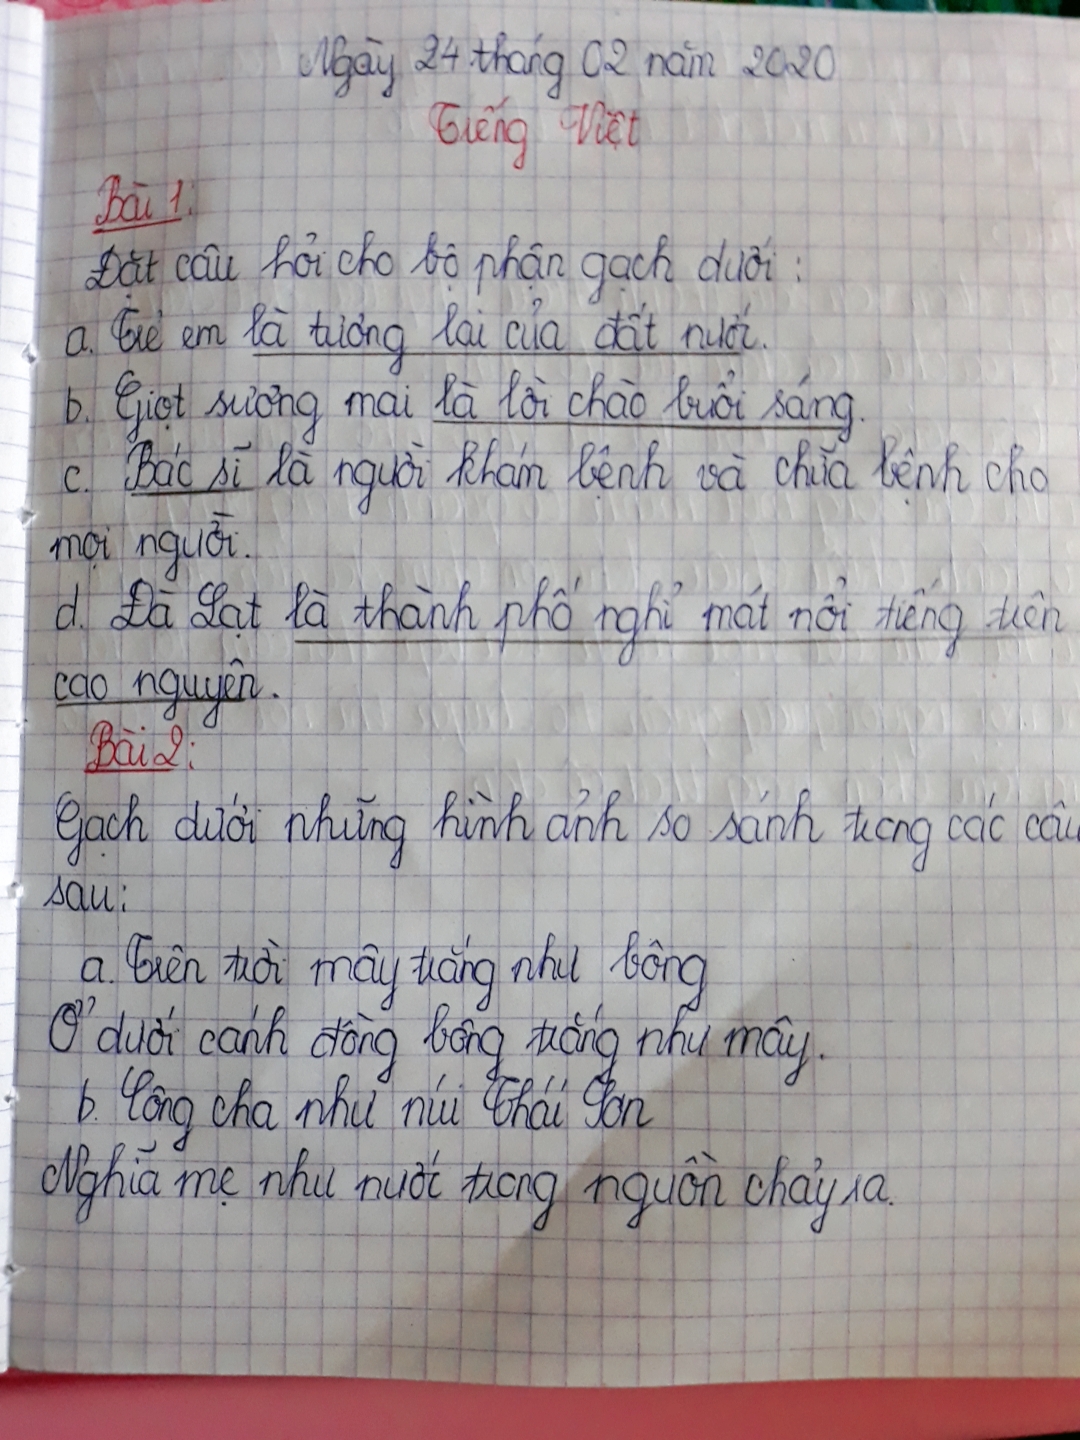 Ngày 24 tháng 02 năm 2020
Tiếng Việt
Bài 1:
Đặt câu hỏi cho bộ phận gạch dưới:
a. Trẻ em là tương lai của đất nước.
b. Giọt sương mai là lời chào buổi sáng.
c. Bác sĩ là người khám bệnh và chữa bệnh cho
mọi người.
d. Đà Lạt là thành phố nghỉ mát nổi tiếng trên
cao nguyên.
Bài 2:
Gạch dưới những hình ảnh so sánh trong các câu
sau:
a. Trên trời mây trắng như bông
Ở dưới cánh đồng bông trắng như mây.
b. Công cha như núi Thái Sơn
Nghĩa mẹ như nước trong nguồn chảy ra.